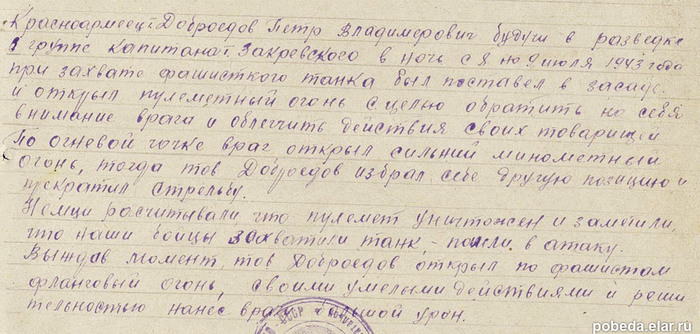 Красноармеец Доброедов Петр Владимерович будучи в разведке
в группе капитана Закревского в ночь с 8 на 9 июля 1943 года
при захвате фашисткого танка был поставел в засаде
и открыл пулеметный огонь с целью обратить на себя
внимание врага и облегчить действия своих товарищей
По огневой точке враг открыл сильний минометный
огонь, тогда тов Доброедов избрал себе другую позицию и
прекратил стрельбу.
Немци расчитывали что пулемет уничтожен и заметили,
что наши бойцы захватили танк, - пошли в атаку.
Выждав момент, тов Доброедов открыл по фашистам
фланговый огонь, своими умелыми действиями и реши
тельностью нанес врагу большой урон.
СССР
pobeda.elar.ru